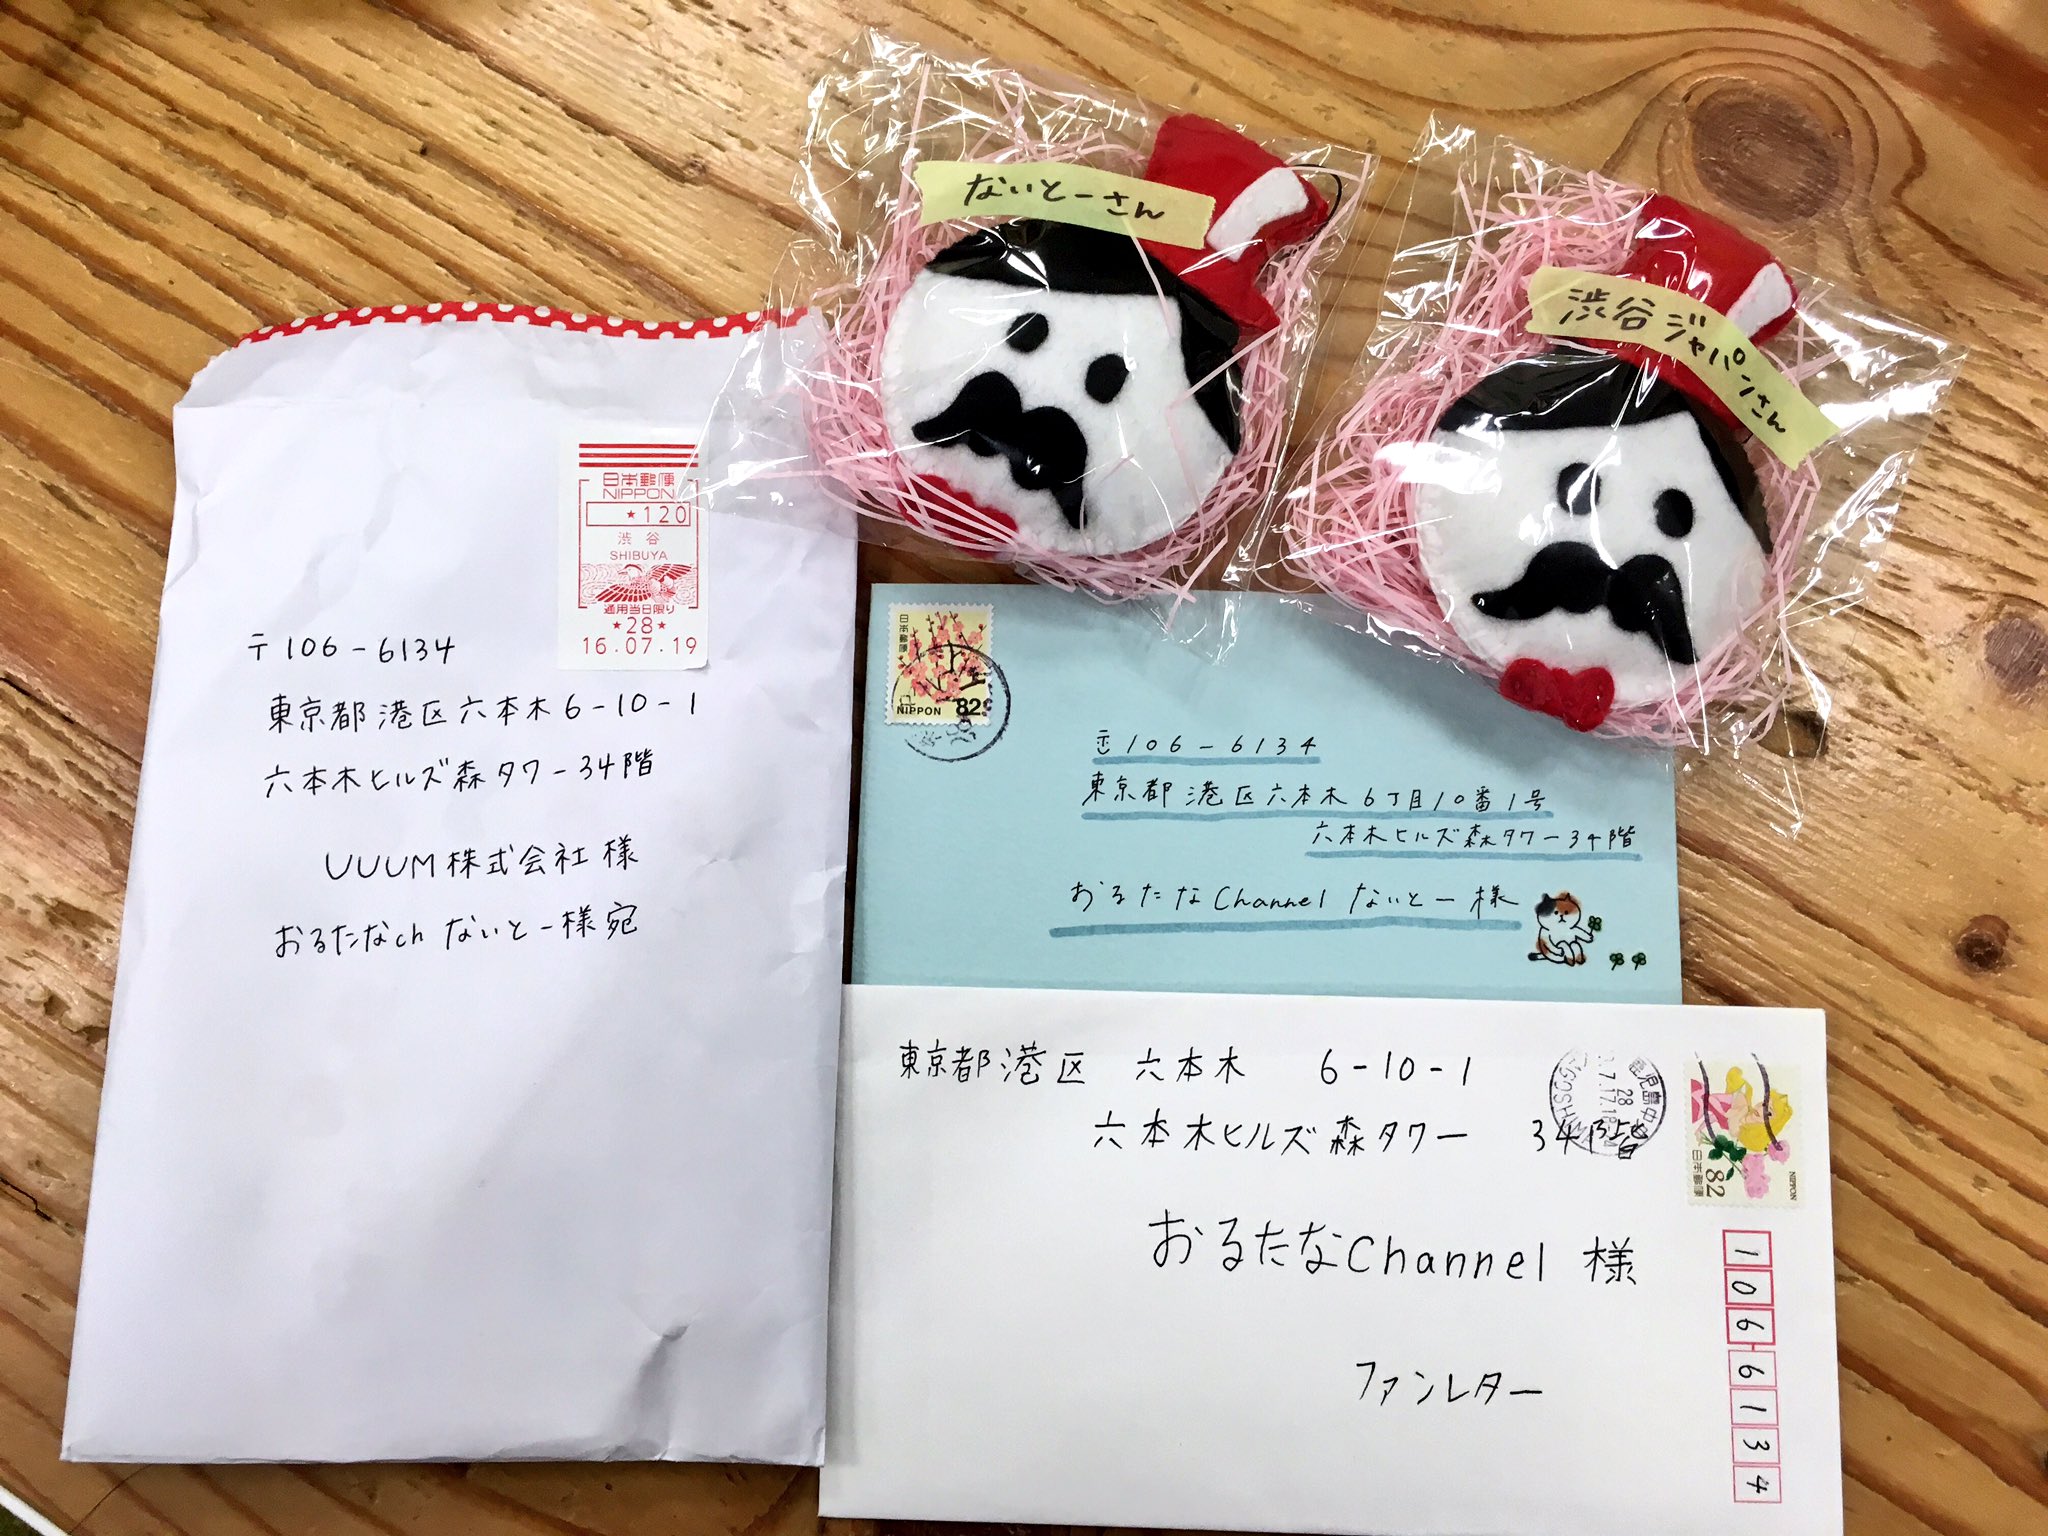 ないとーさん
渋谷ジャパンさん
日本郵便
NIPPON
*120
渋谷
SHIBUYA
通用当日限り
*28*
16.07.19
〒106-6134
東京都港区六本木6-10-1
六本木ヒルズ森タワー34階
UUUM株式会社様
おるたなch ないとー様宛
日本郵便
NIPPON 82
〒106-6134
東京都港区六本木6丁目10番1号
六本木ヒルズ森タワー34階
おるたなChannel ないとー様
東京都港区 六本木 6-10-1
六本木ヒルズ森タワー 34階
おるたなChannel 様
ファンレター
鹿児島中央
28
7.17.18
日本郵便
82
NIPPON
1066134